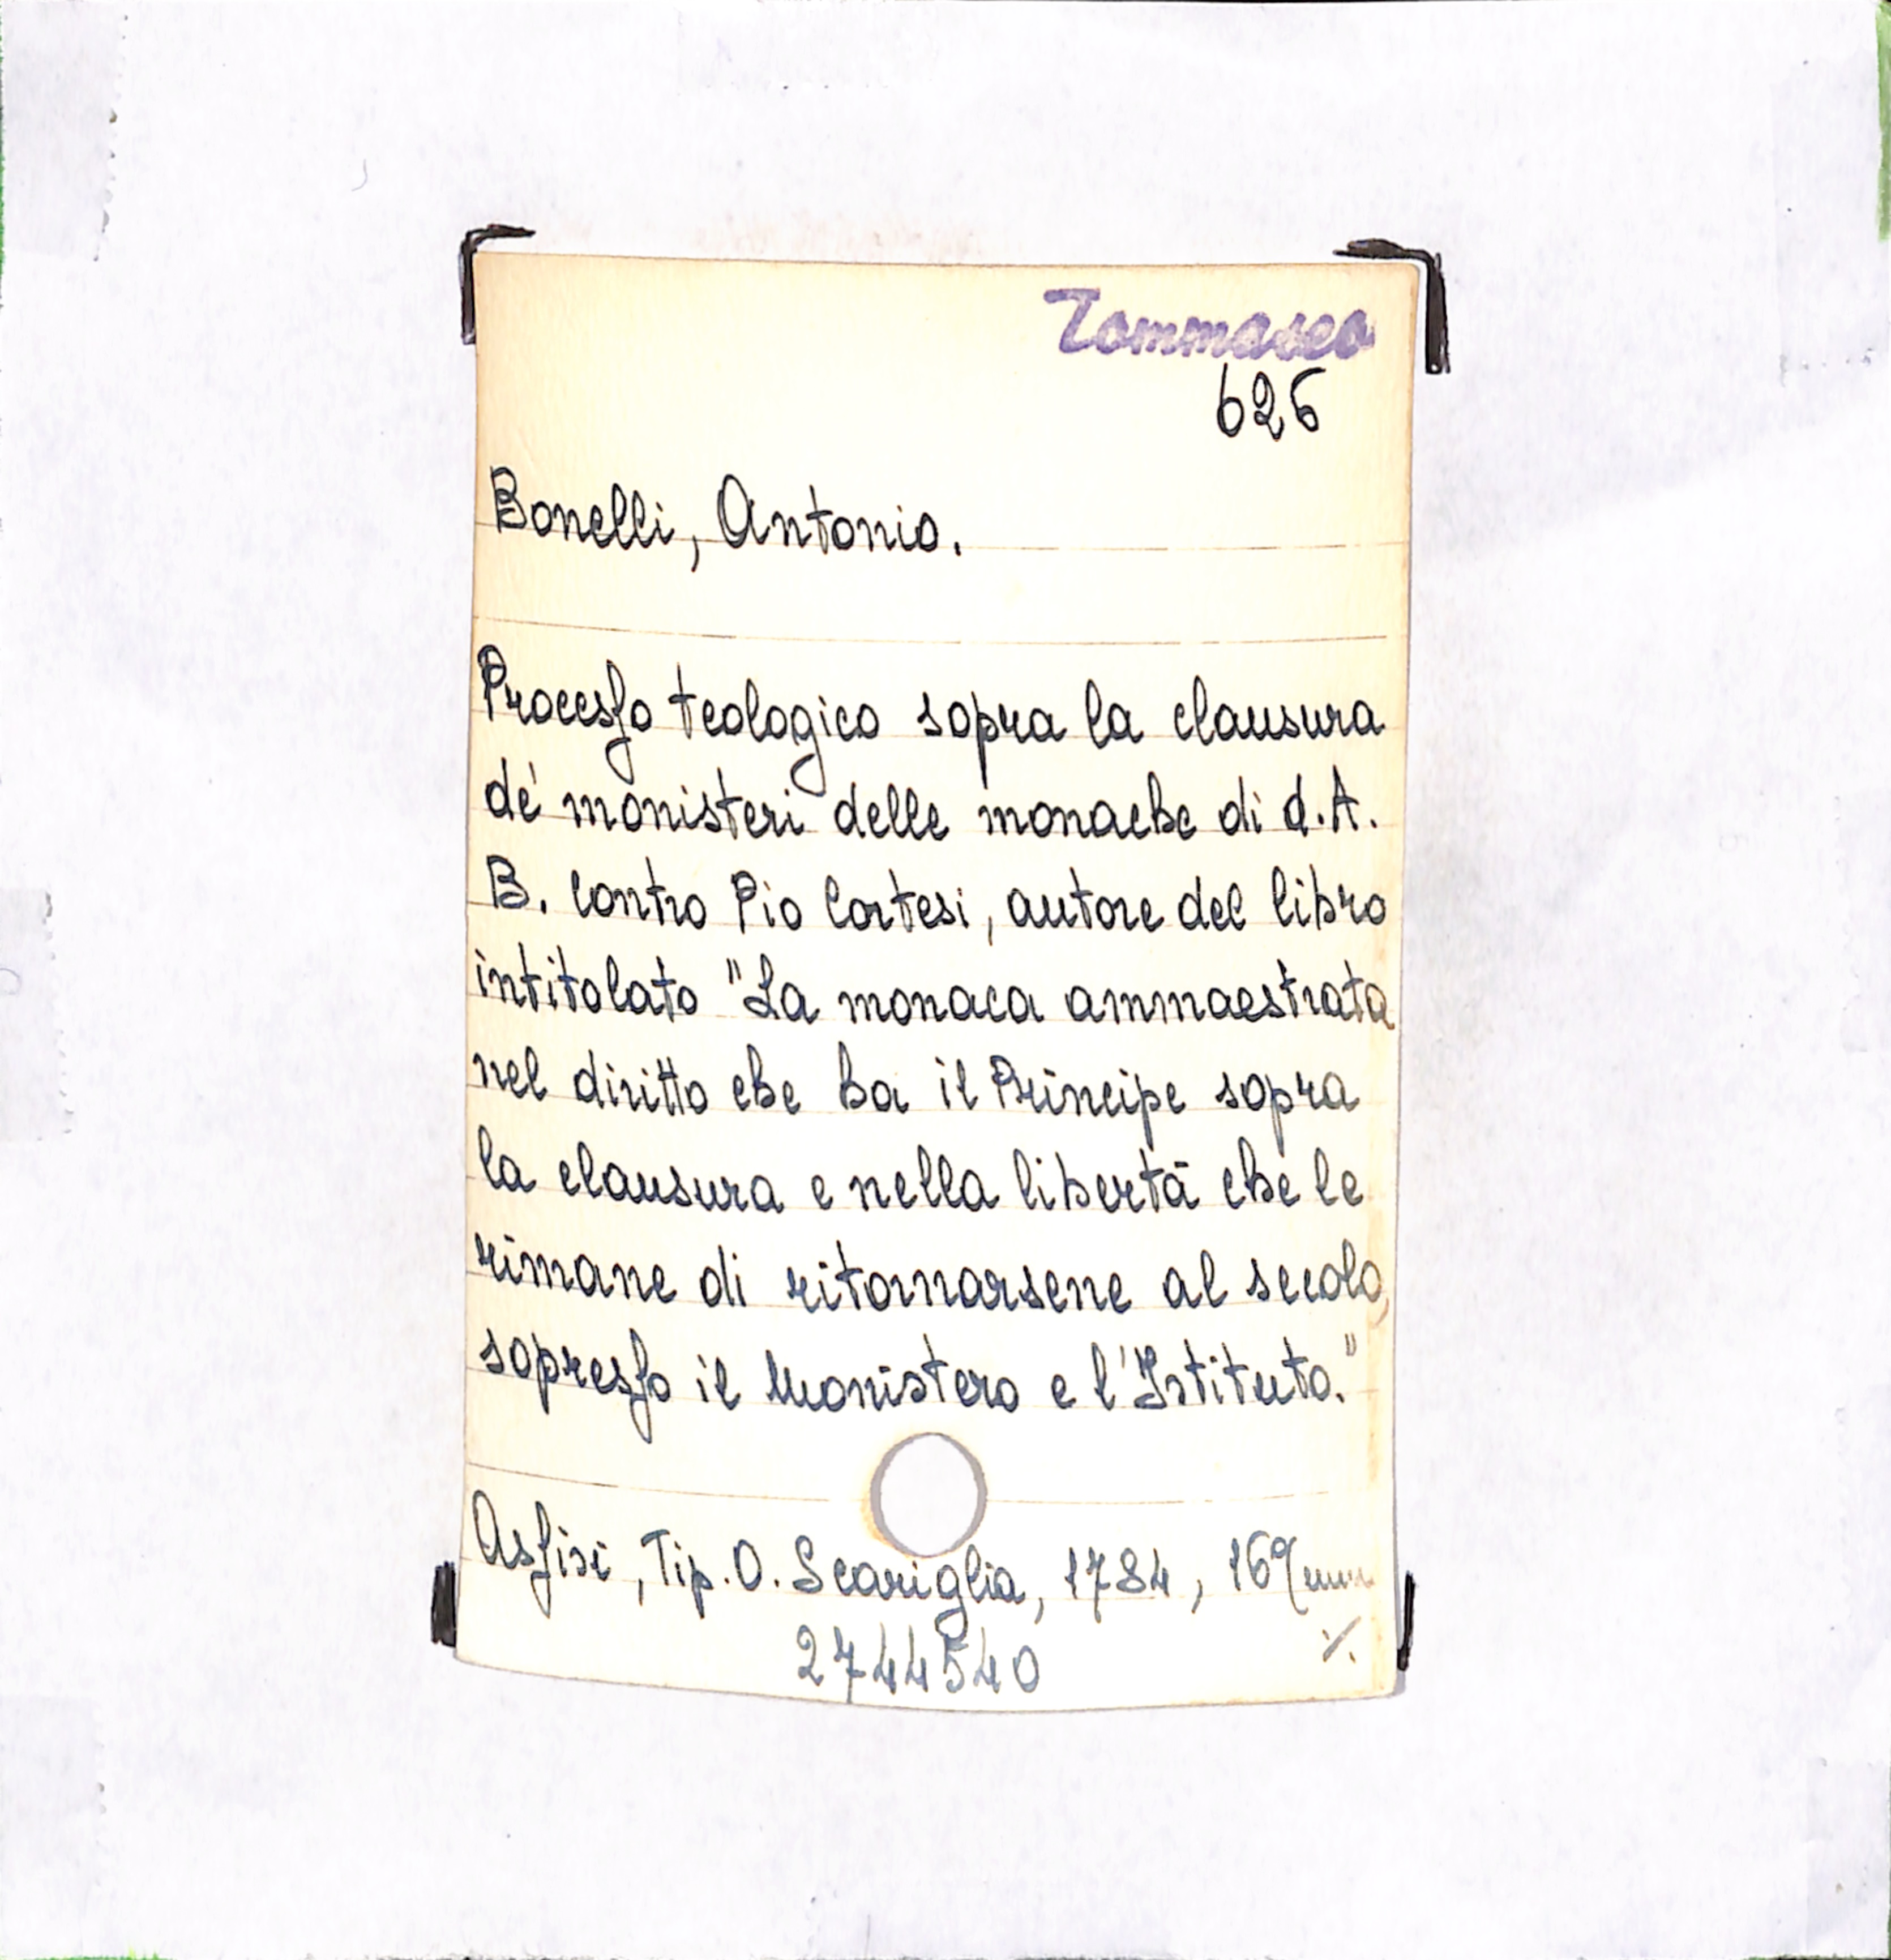 Tommaseo
626
Bonelli, Antonio.
Procesſo teologico sopra la clausura
de' monisteri delle monache di d. A.
B. contro Pio Cortesi, autore del libro
intitolato "La monaca ammaestrata
nel diritto che ha il Principe sopra
la clausura e nella libertà che le
rimane di ritornarsene al secolo,
sopresſo il Monistero e l'Istituto."
Asſisi, Tip. O. Scariglia, 1784, 16º
2744540
./.